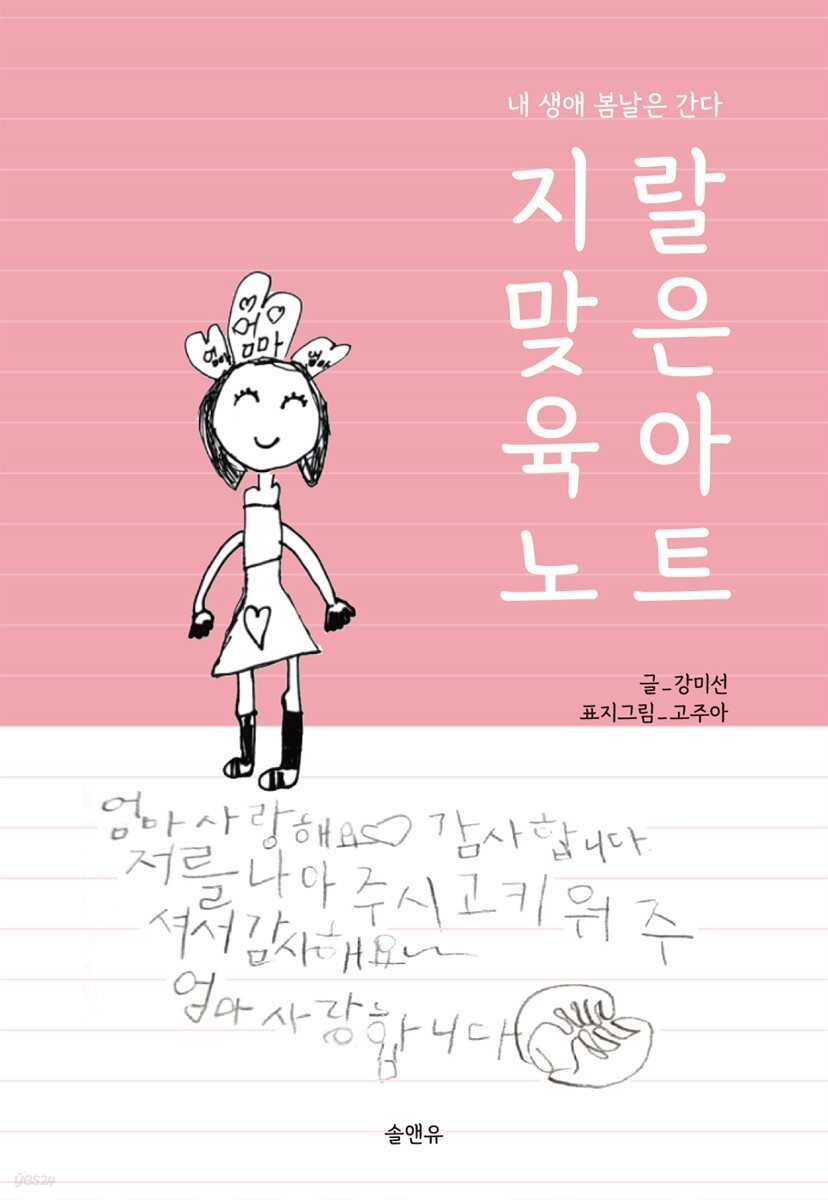 내 생애 봄날은 간다
지랄
맞은
육아
노트
엄마
엄마
엄마
글_강미선
표지그림_고주아
엄마 사랑해요♡ 감사합니다.
저를 나아 주시고 키워 주
셔서 감사해요~
엄마 사랑합니다
솔앤유
yes24